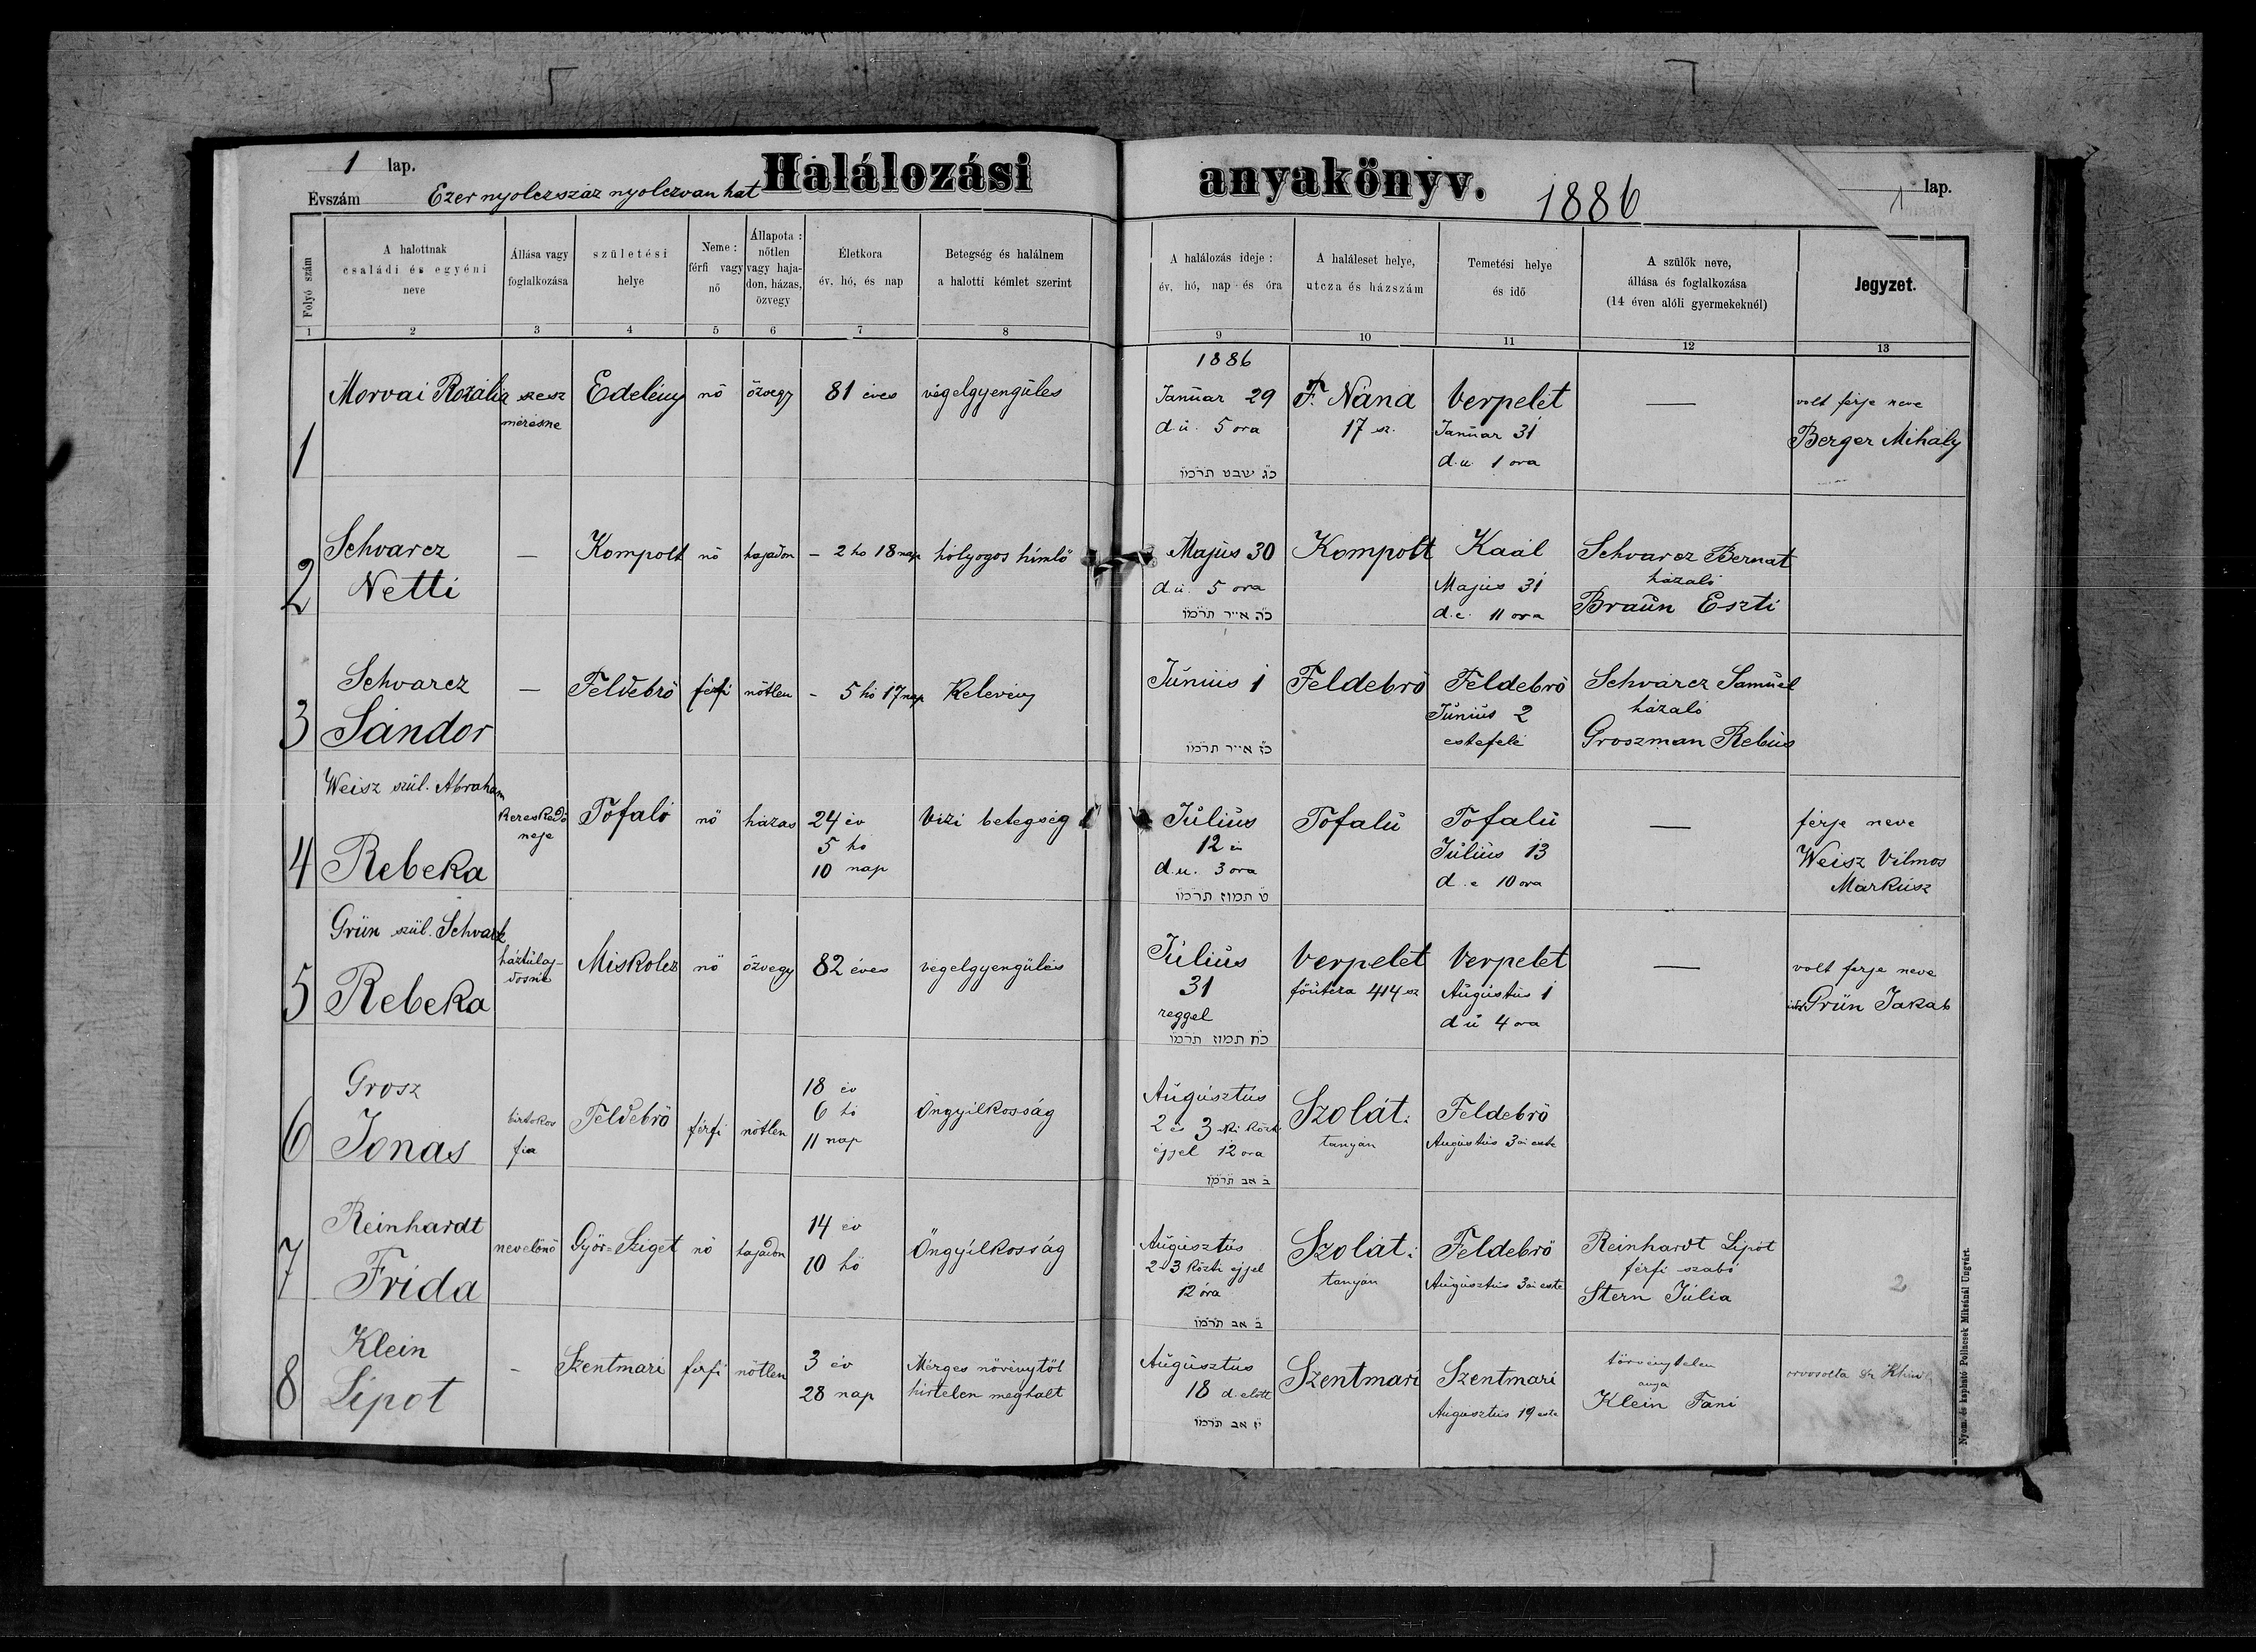 1 lap.
Halálozási anyakönyv.
Évszám Ezer nyolczszáz nyolczvan hat
1886
1 lap.
Folyó szám
A halottnak családi és egyéni neve
Állása vagy foglalkozása
születési helye
Neme: férfi vagy nő
Állapota: nőtlen vagy hajadon, házas, özvegy
Életkora év, hó, és nap
Betegség és halálnem a halotti kémlet szerint
A halálozás ideje: év, hó, nap és óra
A haláleset helye, utcza és házszám
Temetési helye és idő
A szülők neve, állása és foglalkozása (14 éven alóli gyermekeknél)
Jegyzet.
1 2 3 4 5 6 7 8 9 10 11 12 13
1886
1
Morvai Rozália
szesz
mérésne
Edelény
nő
özvegy
81 éves
végelgyengülés
Január 29
d.u. 5 ora
כ̈ג שבט תרמו
F. Nána
17 sz.
Verpelét
Január 31
d.u. 1 ora
—
volt férje neve
Berger Mihály
2
Schvarcz
Netti
—
Kompolt
nő
hajadon
– 2 hó 18 nap
hólyogos himlő
Majus 30
d.u. 5 ora
כ̈ה אייר תרמו
Kompolt
Kaál
Majus 31
d.e. 11 ora
Schvarcz Bernat
házaló
Braun Eszti
3
Schvarcz
Sándor
—
Feldebrő
férfi
nőtlen
– 5 hó 17 nap
Kelevény
Június 1
כ̈ז אייר תרמו
Feldebrő
Feldebrő
Június 2
estefelé
Schvárcz Samuel
házaló
Groszman Rebus
4
Weisz szül. Abraham
Rebeka
Kereskedő
neje
Tófalú
nő
házas
24 év
5 hó
10 nap
Vizi betegség
Július
12 én
d.u. 3 ora
ט תמוז תרמו
Tófalú
Tófalú
Július 13
d.e 10 ora
—
férje neve
Weisz Vilmos
Márkusz
5
Grün szül. Schvarcz
Rebeka
háztulaj-
dosnő
Miskolcz
nő
özvegy
82 éves
végelgyengülés
Július
31
reggel
כ̈ח תמוז תרמו
Verpelét
főutcza 414 sz
Verpelét
Augustus 1
d u 4 ora
—
volt férje neve
Grün Jakab
6
Grosz
Jonas
birtokos
fia
Feldebrő
férfi
nőtlen
18 év
6 hó
11 nap
Öngyilkosság
Augusztus
2 és 3 ki közt
éjjel 12 ora
ב אב תרמו
Szolát:
tanyán
Feldebrő
Augustus 3 án este
7
Reinhardt
Frida
nevelőnő
Győr=Sziget
nő
hajadon
14 év
10 hó
Öngyilkosság
Augusztus
2-3 közti éjjel
12 óra
ב אב תרמו
Szolát:
tanyán
Feldebrő
Augusztus 3 án este
Reinhardt Lipót
férfi szabó
Stern Júlia
2
8
Klein
Lipot
-
Szentmari
férfi
nőtlen
3 év
28 nap
Mérges növénytől
hirtelen meghalt
Augusztus
18 d. előtt
יז אב תרמו
Szentmari
Szentmari
Augusztus 19 este
törvénytelen
anya
Klein Fani
orvosolta dr
Nyom. és kapható Pollacsek Miksánál Ungvárt.